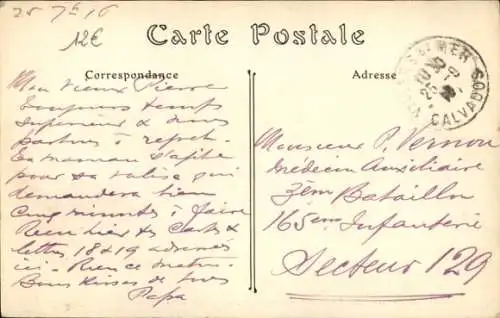 25 7bre 16
12€
Carte Postale
Correspondance
Adresse
MER
CALVADOS
Mon vieux Pierre
Toujours temps
supérieur & nous
partons à
Ta maman s'apprête
pour sa valise qui
demandera bien
cinq minutes à faire
Reçu hier tes cartes &
lettres 18 & 19 adressées
ici. Rien ce matin.
Bons kisses de tous
Papa
Monsieur P. Vernon
Médecin Auxiliaire
3ème Bataillon
165em Infanterie
Secteur 129